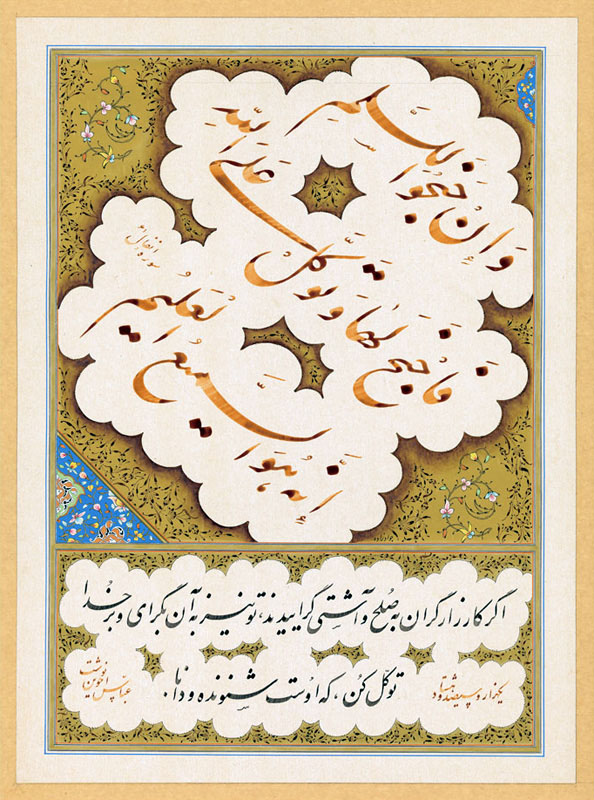 وَإِنْ جَنَحُوا لِلسَّلْمِ
فَاجْنَحْ لَهَا وَتَوَكَّلْ عَلَى اللّٰهِ
إِنَّهُ هُوَ السَّمِيعُ الْعَلِيمُ
سوره انفال
اگر کارزارگران به صلح و آشتی گراییدند، تو نیز به آن بگرای و بر خدا
توکّل کن، که اوست شنونده و دانا.
یکهزار و سیصد و
عباس اخوین نوشت